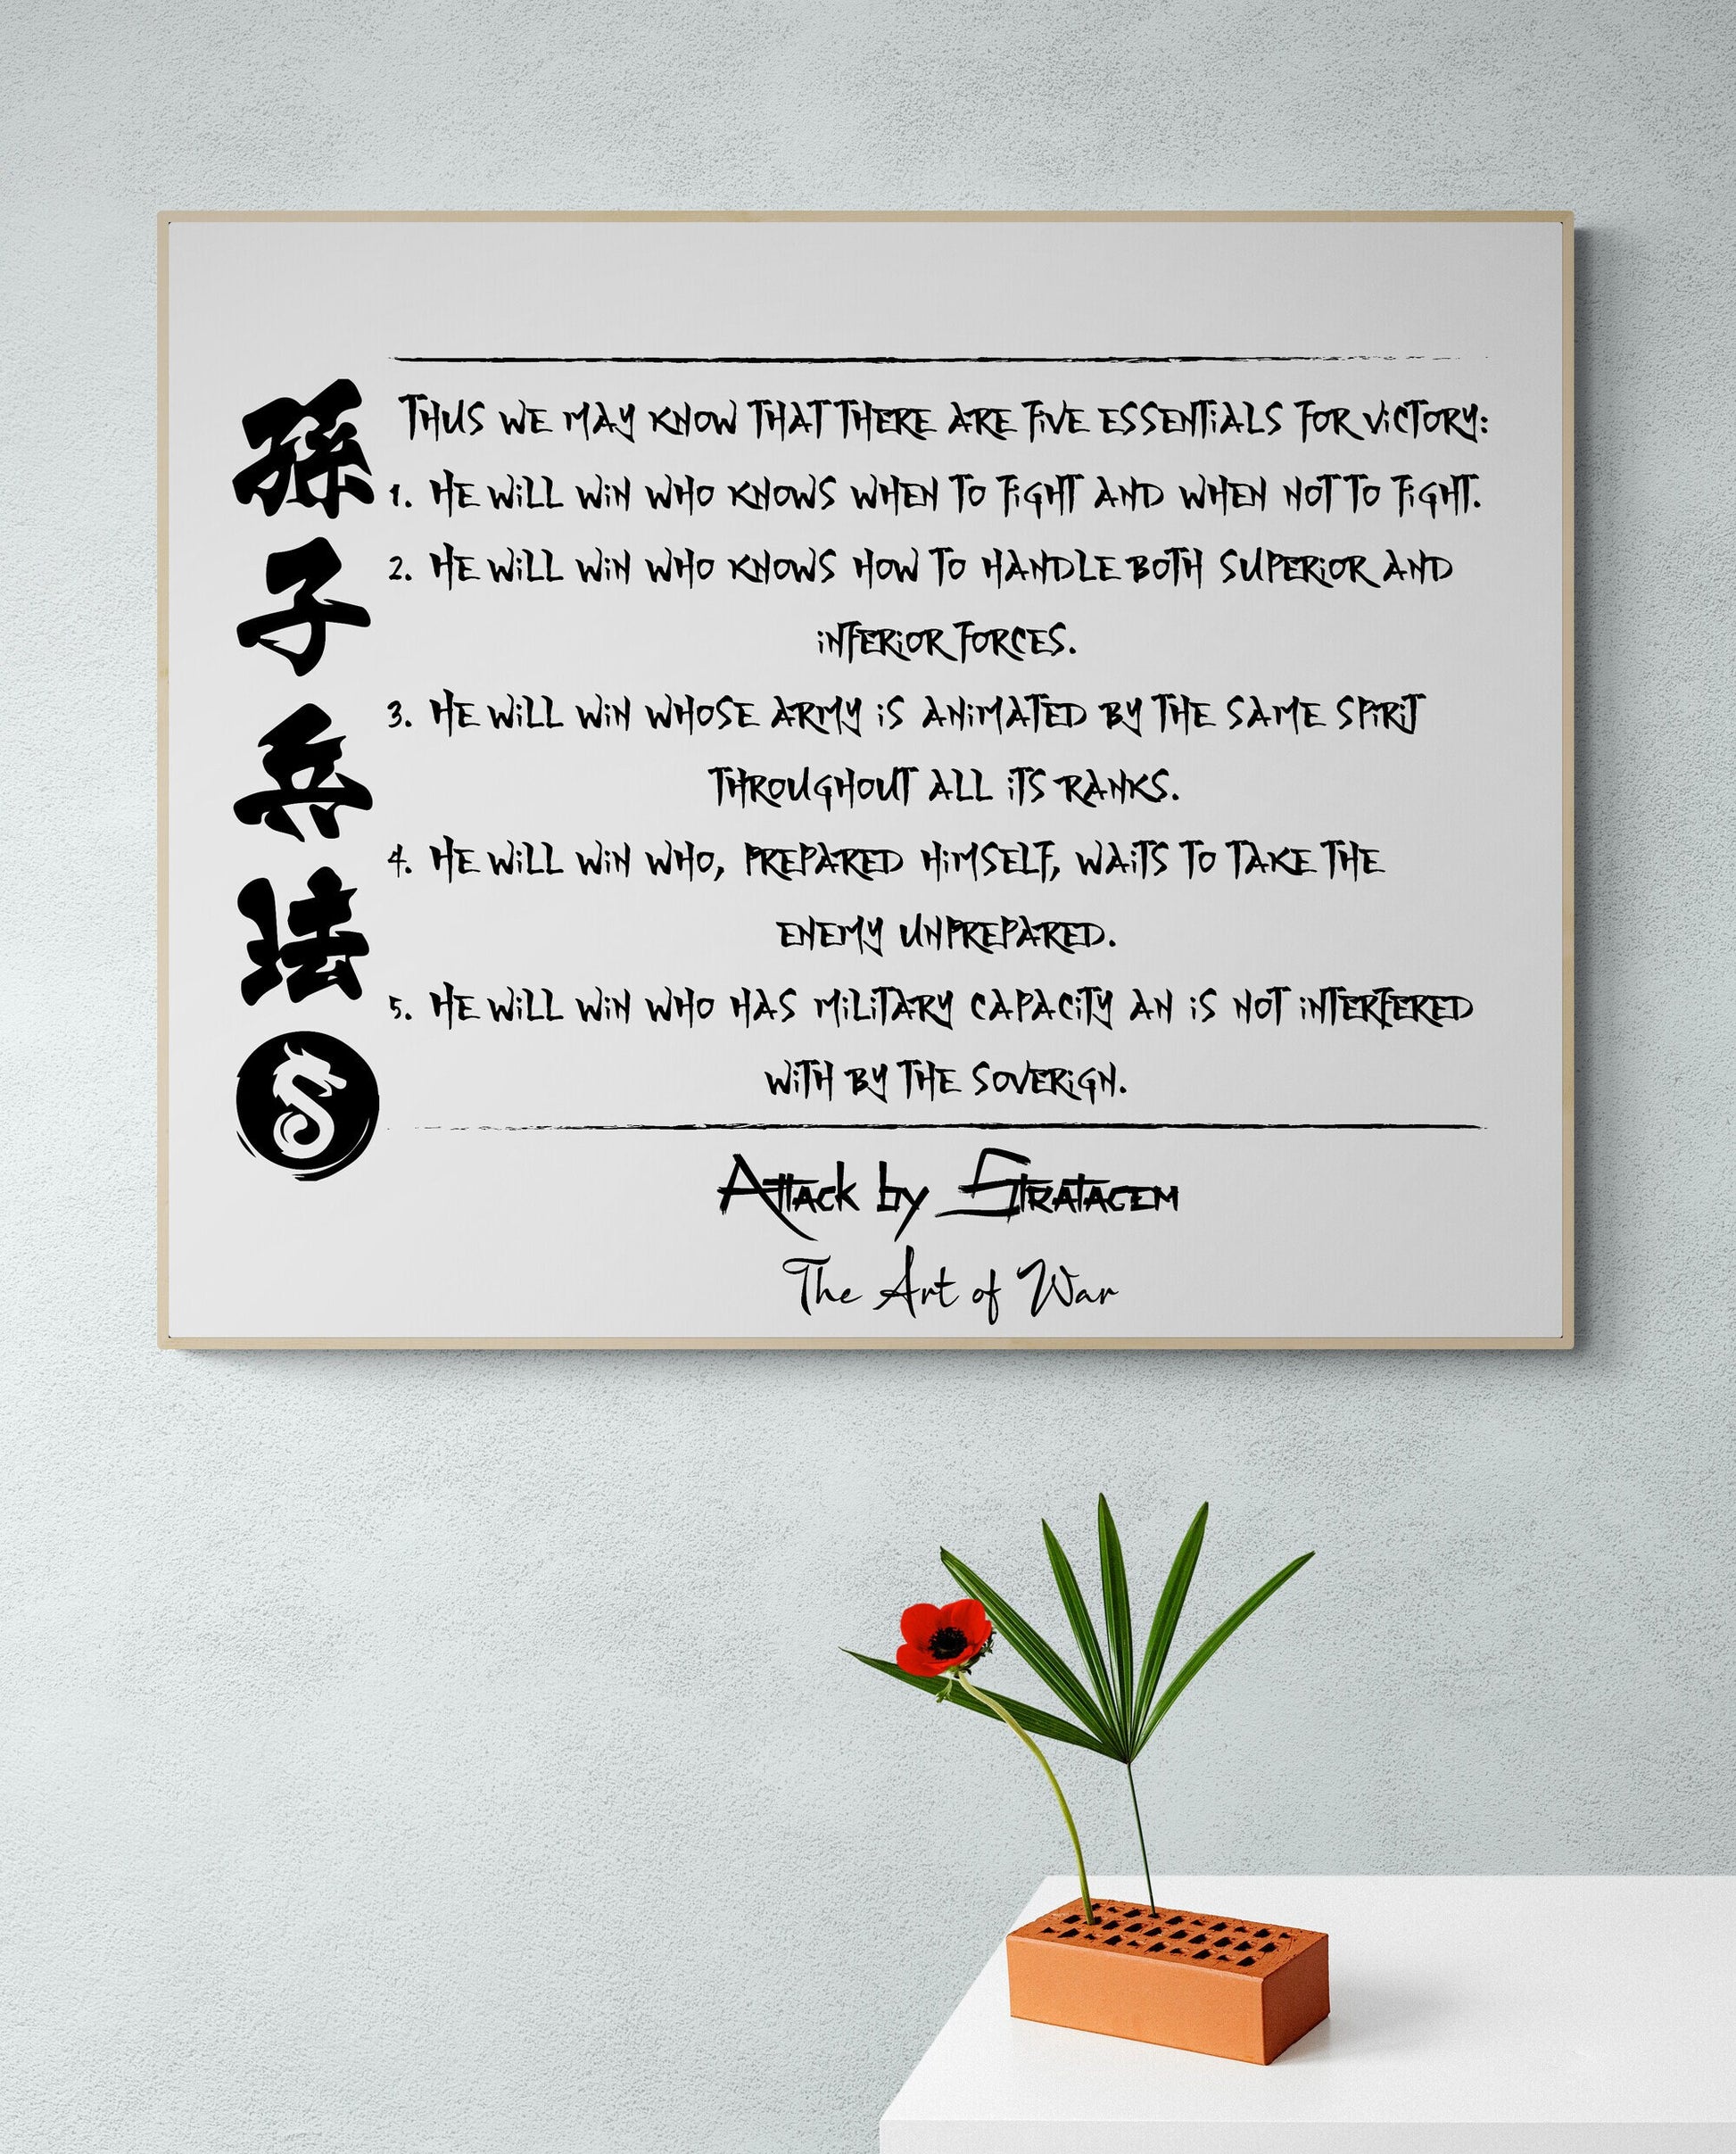 孫
子
兵
法
THUS WE MAY KNOW THAT THERE ARE FIVE ESSENTIALS FOR VICTORY:
1. HE WILL WIN WHO KNOWS WHEN TO FIGHT AND WHEN NOT TO FIGHT.
2. HE WILL WIN WHO KNOWS HOW TO HANDLE BOTH SUPERIOR AND
INFERIOR FORCES.
3. HE WILL WIN WHOSE ARMY IS ANIMATED BY THE SAME SPIRIT
THROUGHOUT ALL ITS RANKS.
4. HE WILL WIN WHO, PREPARED HIMSELF, WAITS TO TAKE THE
ENEMY UNPREPARED.
5. HE WILL WIN WHO HAS MILITARY CAPACITY AN IS NOT INTERFERED
WITH BY THE SOVERIGN.
Attack by Stratagem
The Art of War